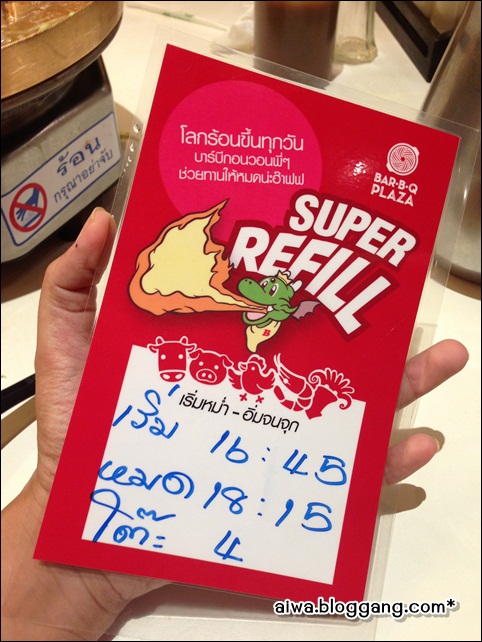 ร้อน
กรุณาอย่าจับ
โลกร้อนขึ้นทุกวัน
บาร์บีกอนวอนพี่ๆ
ช่วยทานให้หมดน่ะฮ๊าฟฟ
BAR·B·Q
PLAZA
SUPER
REFILL
B
เริ่มหม่ำ - อิ่มจนจุก
เริ่ม 16:45
หมด 18:15
โต๊ะ 4
aiwa.bloggang.com*